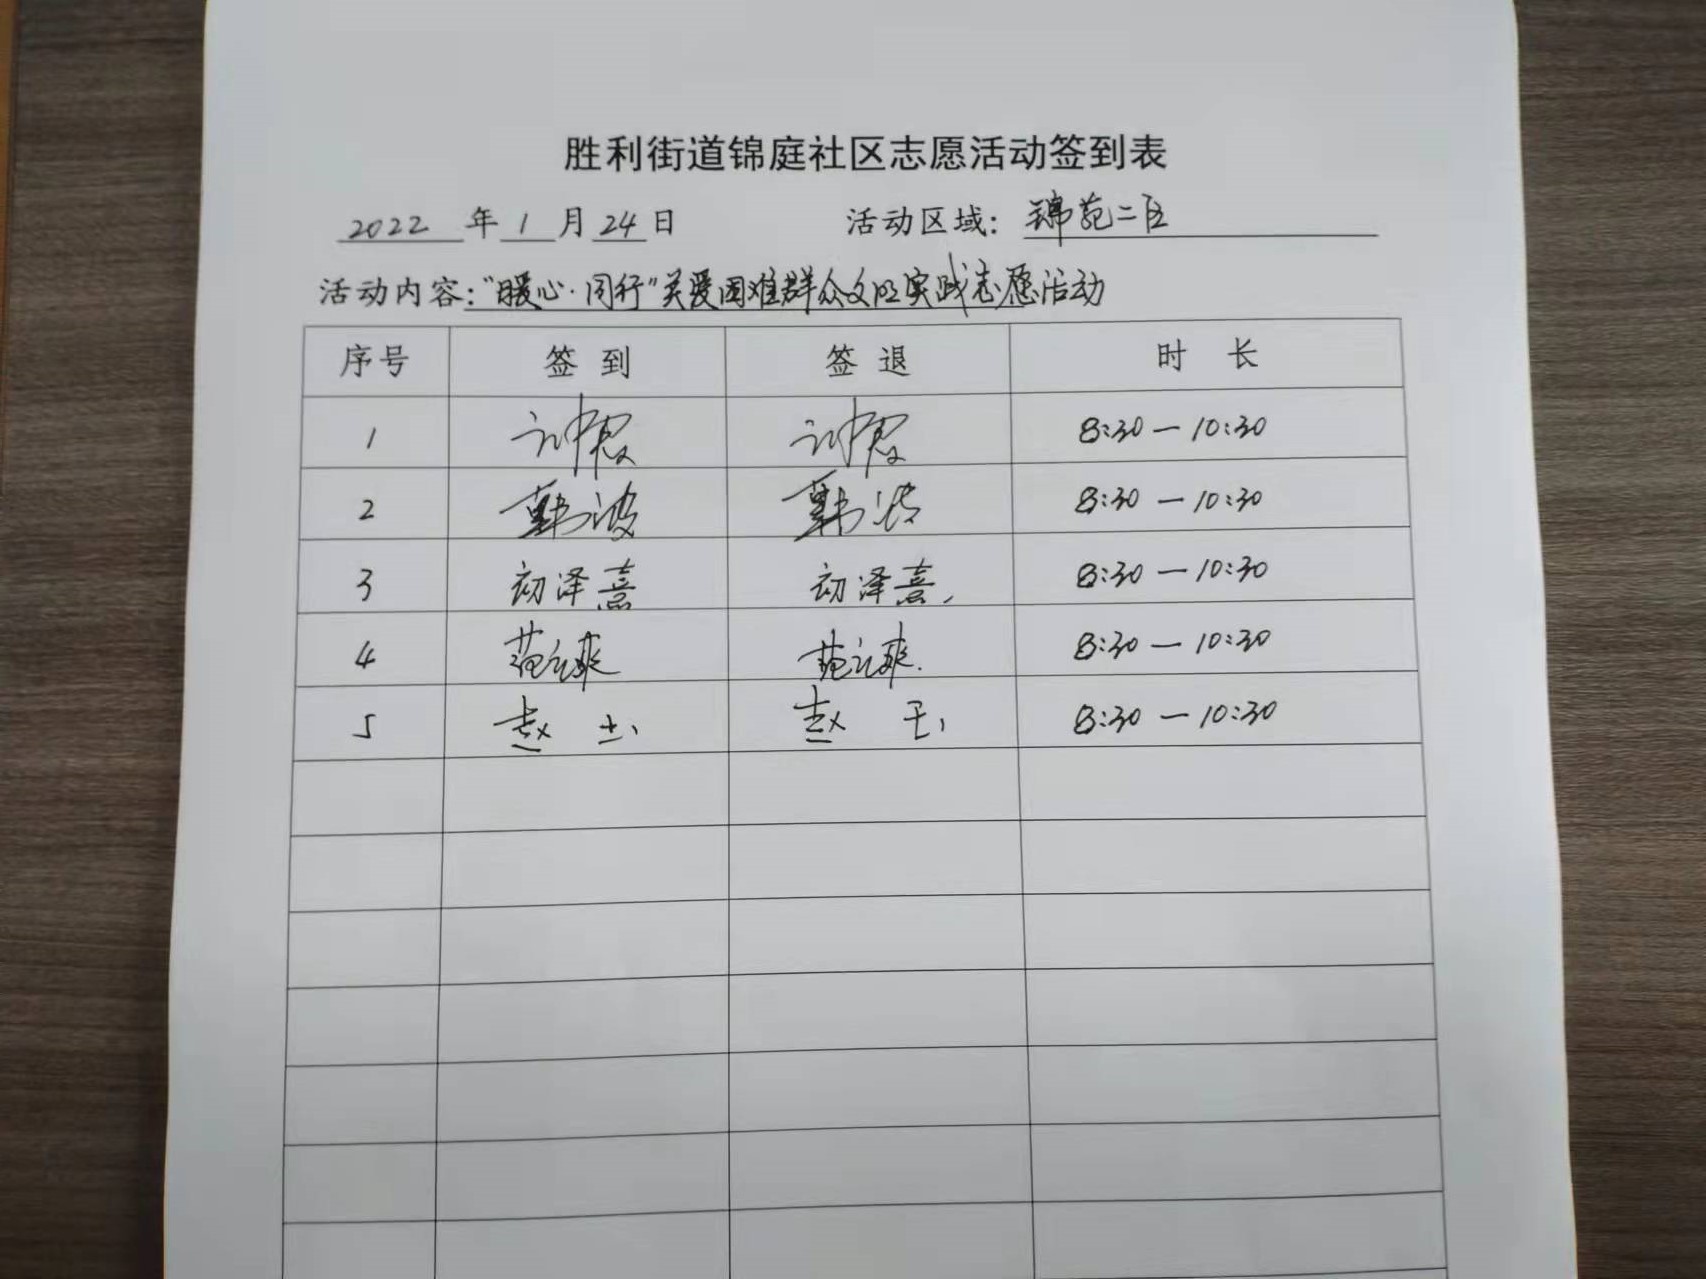 胜利街道锦庭社区志愿活动签到表
2022 年 1 月 24 日 活动区域: 锦苑二区
活动内容:"暖心·同行"关爱困难群众文明实践志愿活动
序号 签到 签退 时长
1 8:30—10:30
2 韩波 韩波 8:30—10:30
3 初泽熹 初泽熹 8:30—10:30
4 范立爽 范立爽 8:30—10:30
5 赵玉 赵玉 8:30—10:30